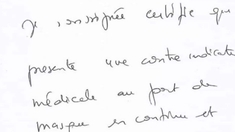 je soussignée certifie que
présente une contre indication
médicale au port du
masque en continu et